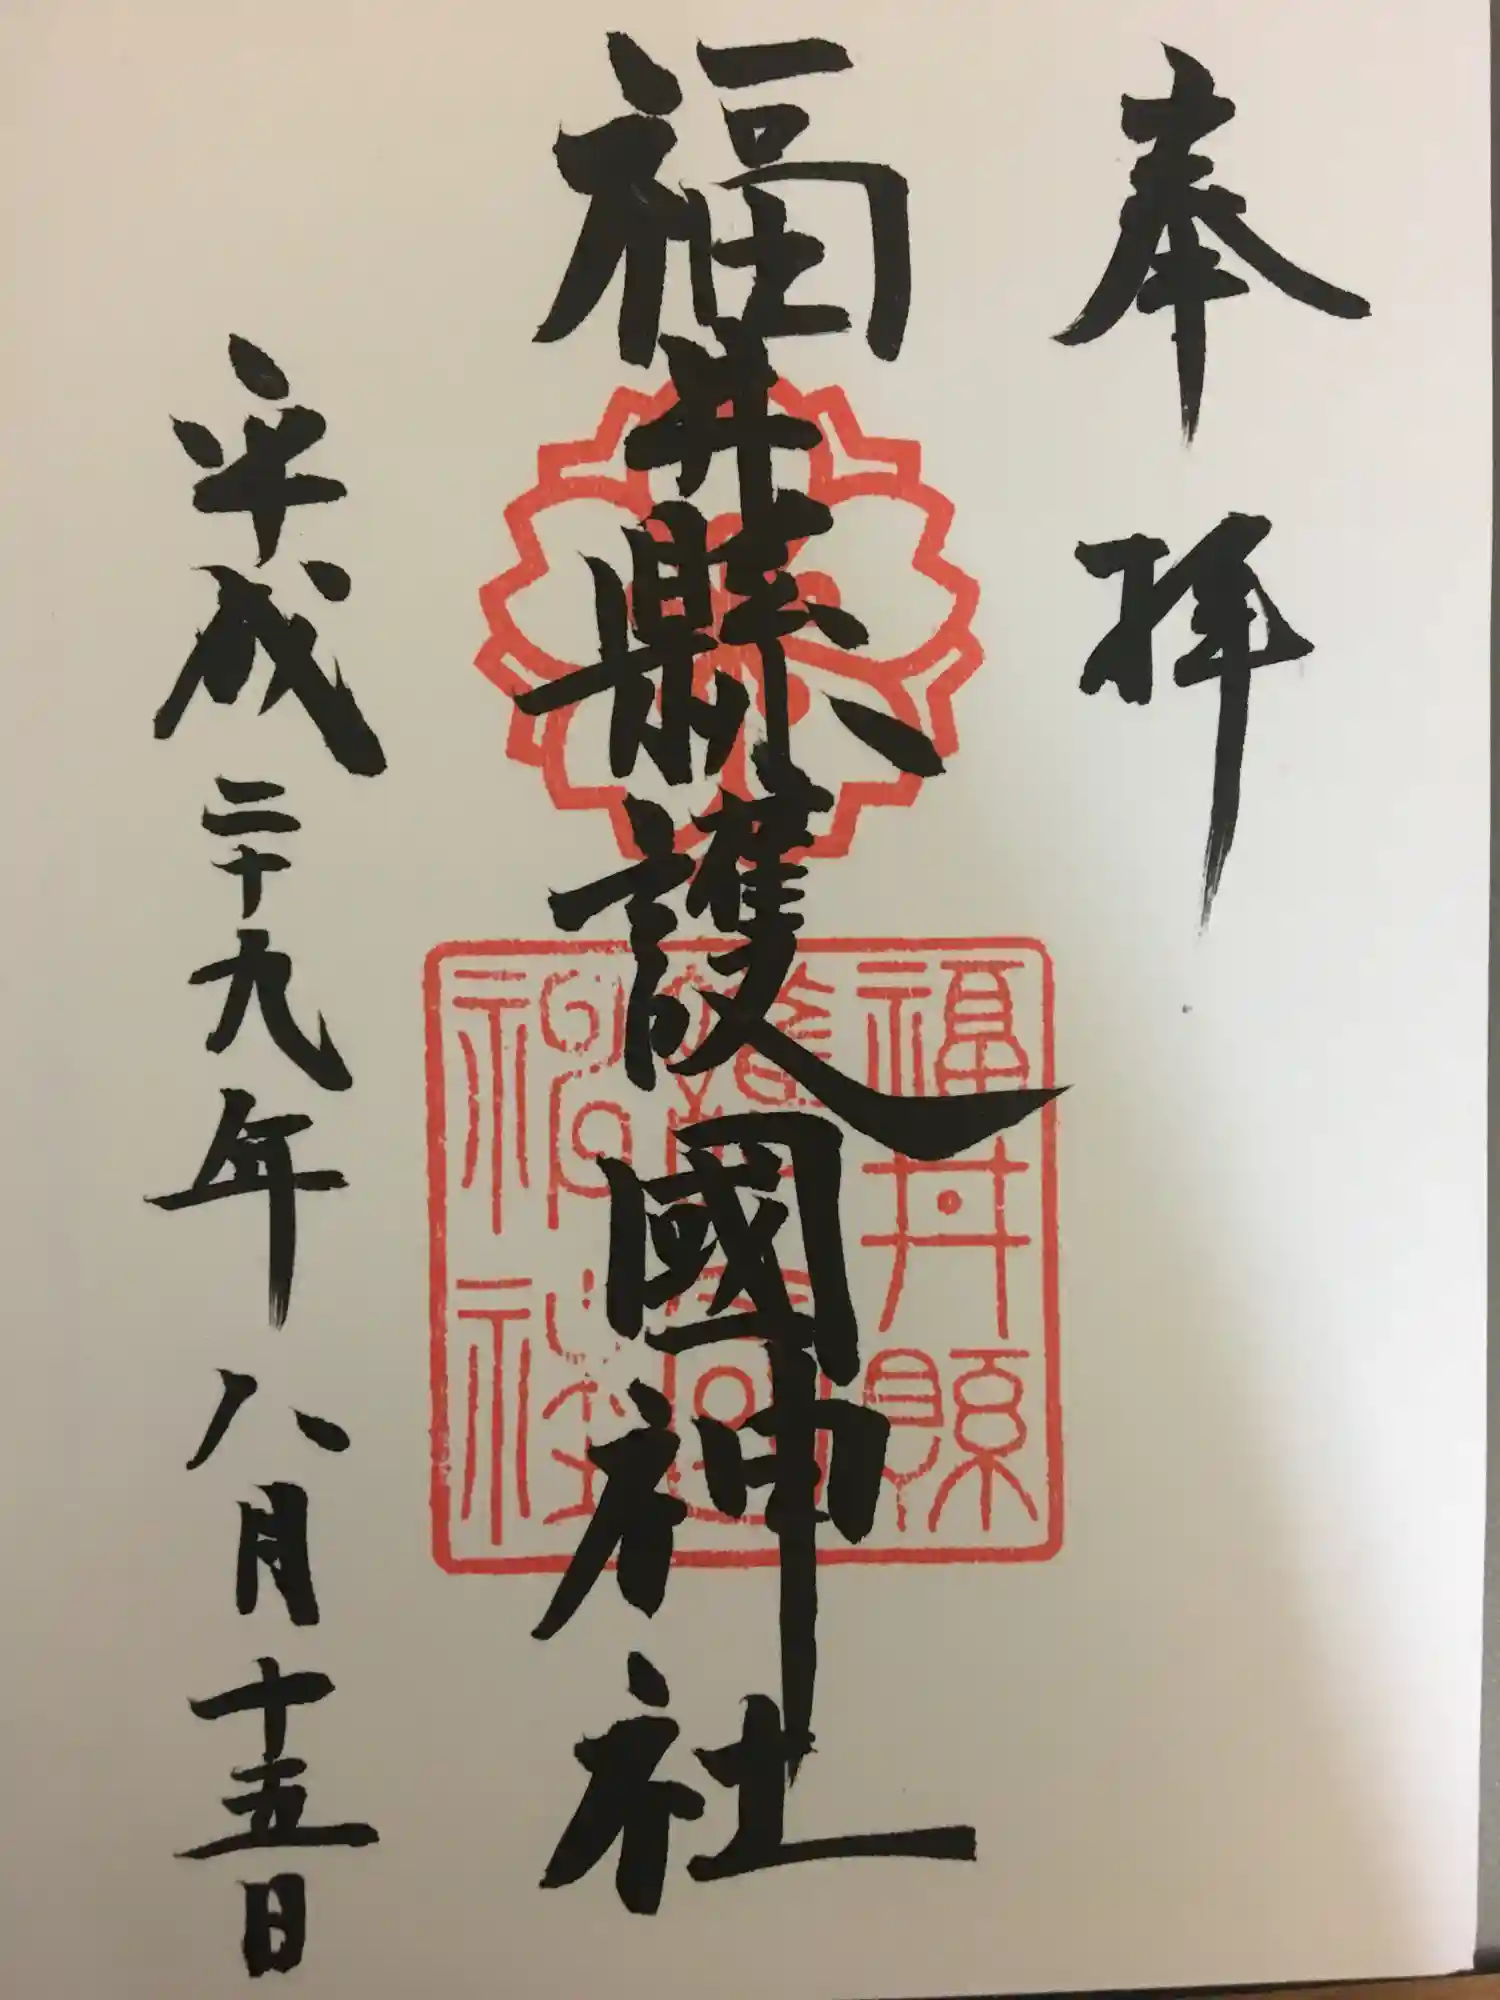 奉拝
福井縣護國神社
平成二十九年八月十五日
福井縣
護國
神社